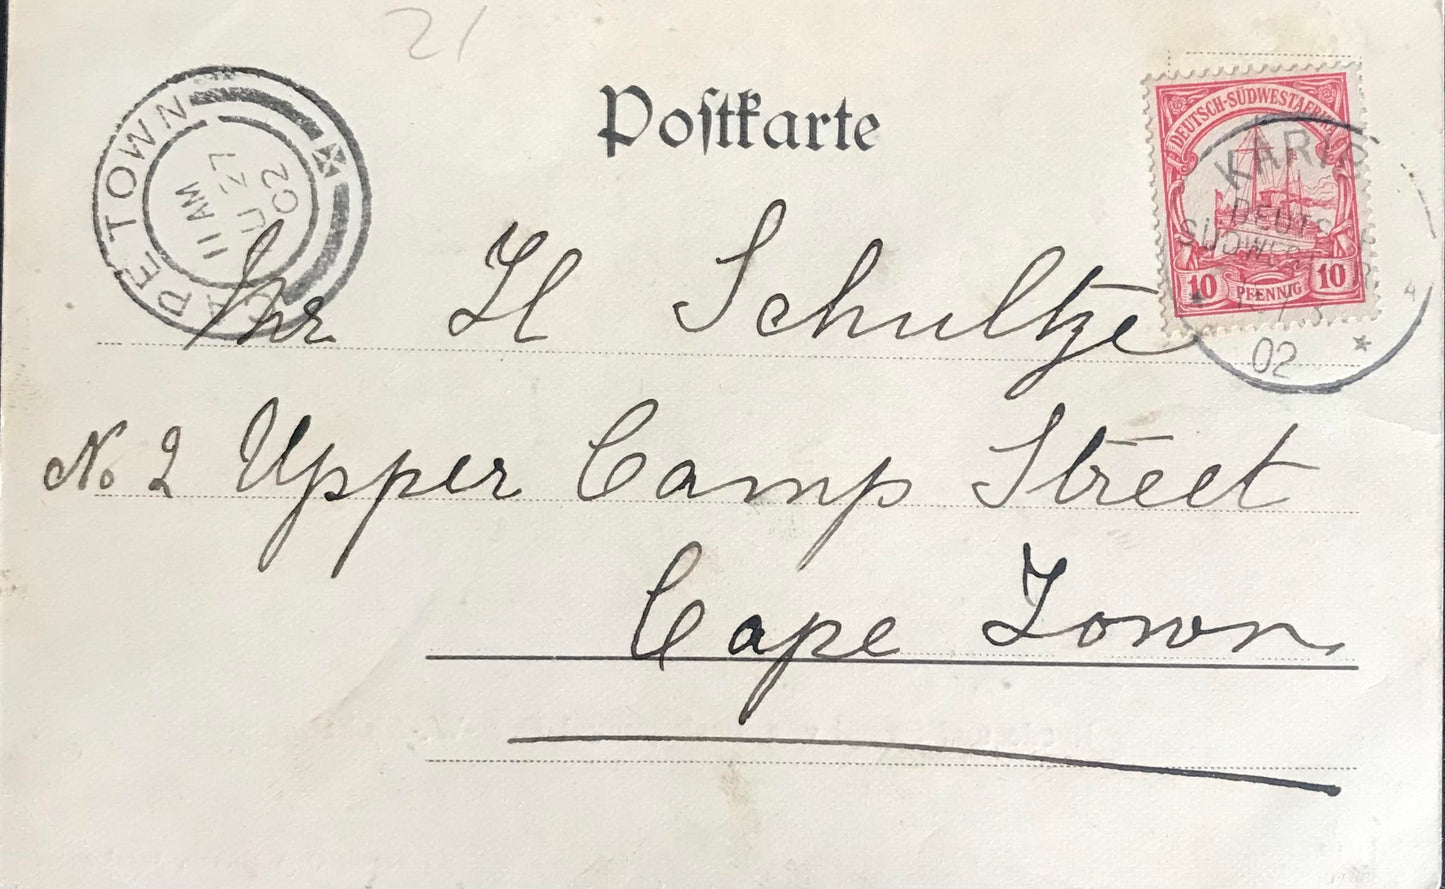 21
Postkarte
CAPETOWN
11 AM
27
02
DEUTSCH-SÜDWESTAFRIKA
10 PFENNIG 10
KARIB
02
Mr H Schultze
No 2 Upper Camp Street
Cape Town